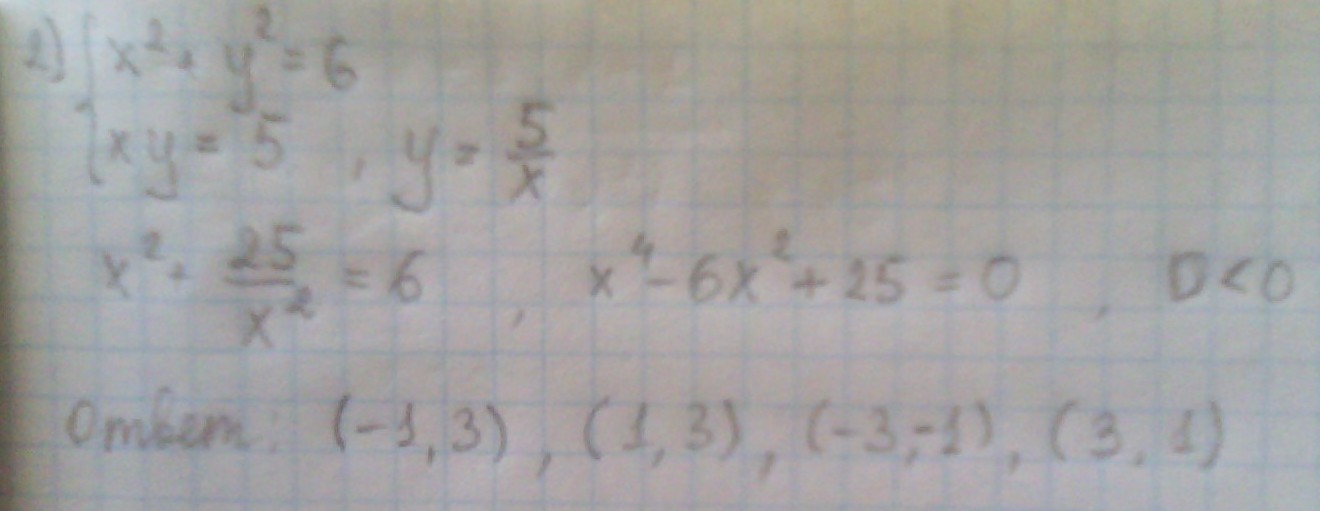 2) { x² + y² = 6
{ xy = 5 , y = 5/x
x² + 25/x² = 6 , x⁴ - 6x² + 25 = 0 , D < 0
Ответ: (-1, 3) , (1, 3) , (-3, -1) , (3, 1)